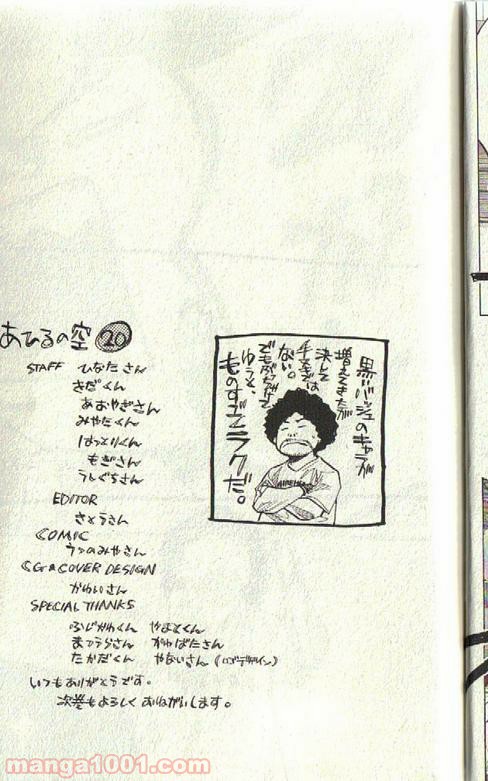 あひるの空 20
STAFF ひなたさん
きだくん
あおやぎさん
みやたくん
はっとりくん
もぎさん
うしぐちさん
EDITOR
さとうさん
COMIC
うつのみやさん
CG & COVER DESIGN
かわいさん
SPECIAL THANKS
ふじがわくん やまとくん
まつうらさん かわばたさん
たかだくん やないさん(ロゴデザイン)
いつもありがとうです。
次巻もよろしくおねがいします。
黒いバッシュのキャラが
増えてきたが
決して
手ヌキでは
ない。
でもぶっちゃけて
ゆうと、
ものすごくラクだ。
manga1001.com